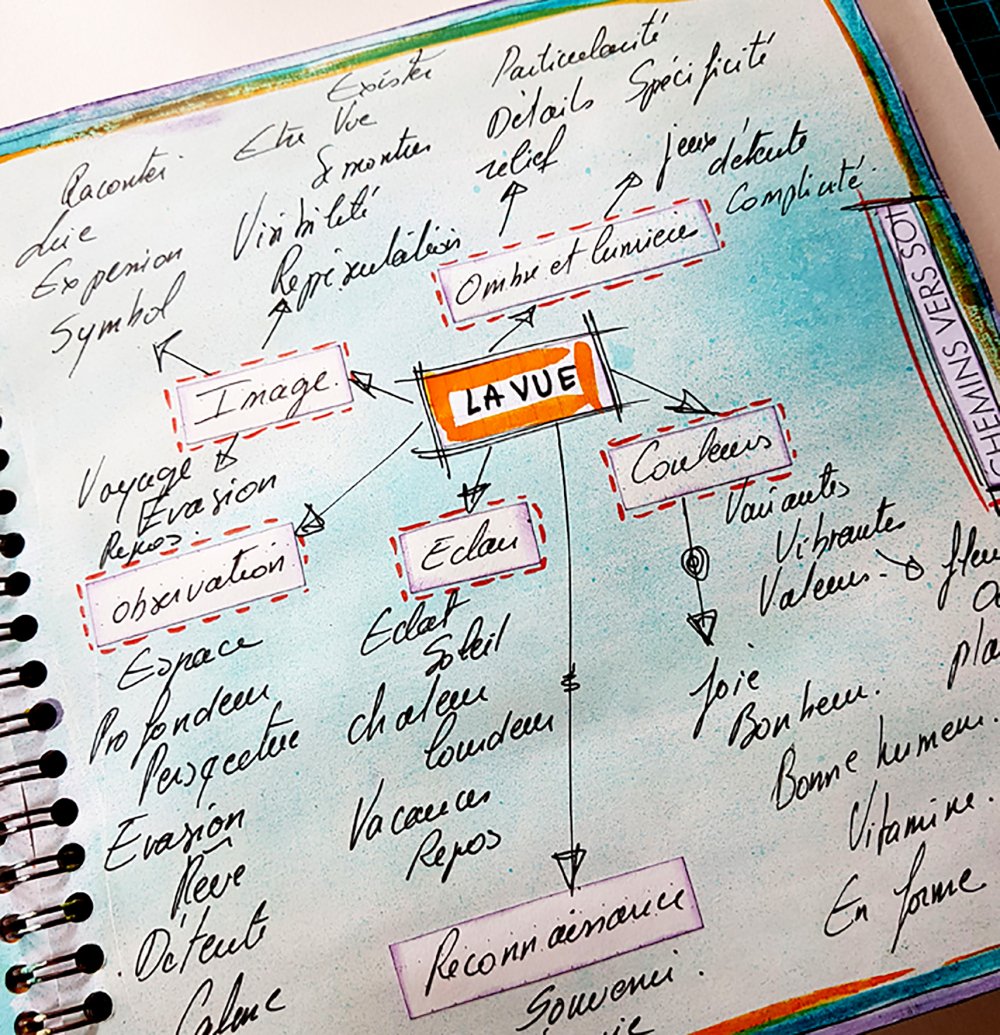 Exister
Particularité
Raconter
Etre Vue
Détails Spécificité
& montrer
relief
jeux
détente
Lire
Visibilité
Complicité
Expression
Représentation
Symbol
Ombre et lumière
CHEMINS VERS SOI
Image
LA VUE
Couleurs
Voyage
Evasion
Repos
Variantes
Vibrantes
Valeurs
Observation
Eclat
Espace
Soleil
Profondeur
chaleur
Joie
Perspective
lourdeur
Bonheur.
Evasion
Vacances
Bonne humeur.
Rêve
Repos
Vitamine.
Détente
En forme
Calme
Reconnaissance
Souvenir